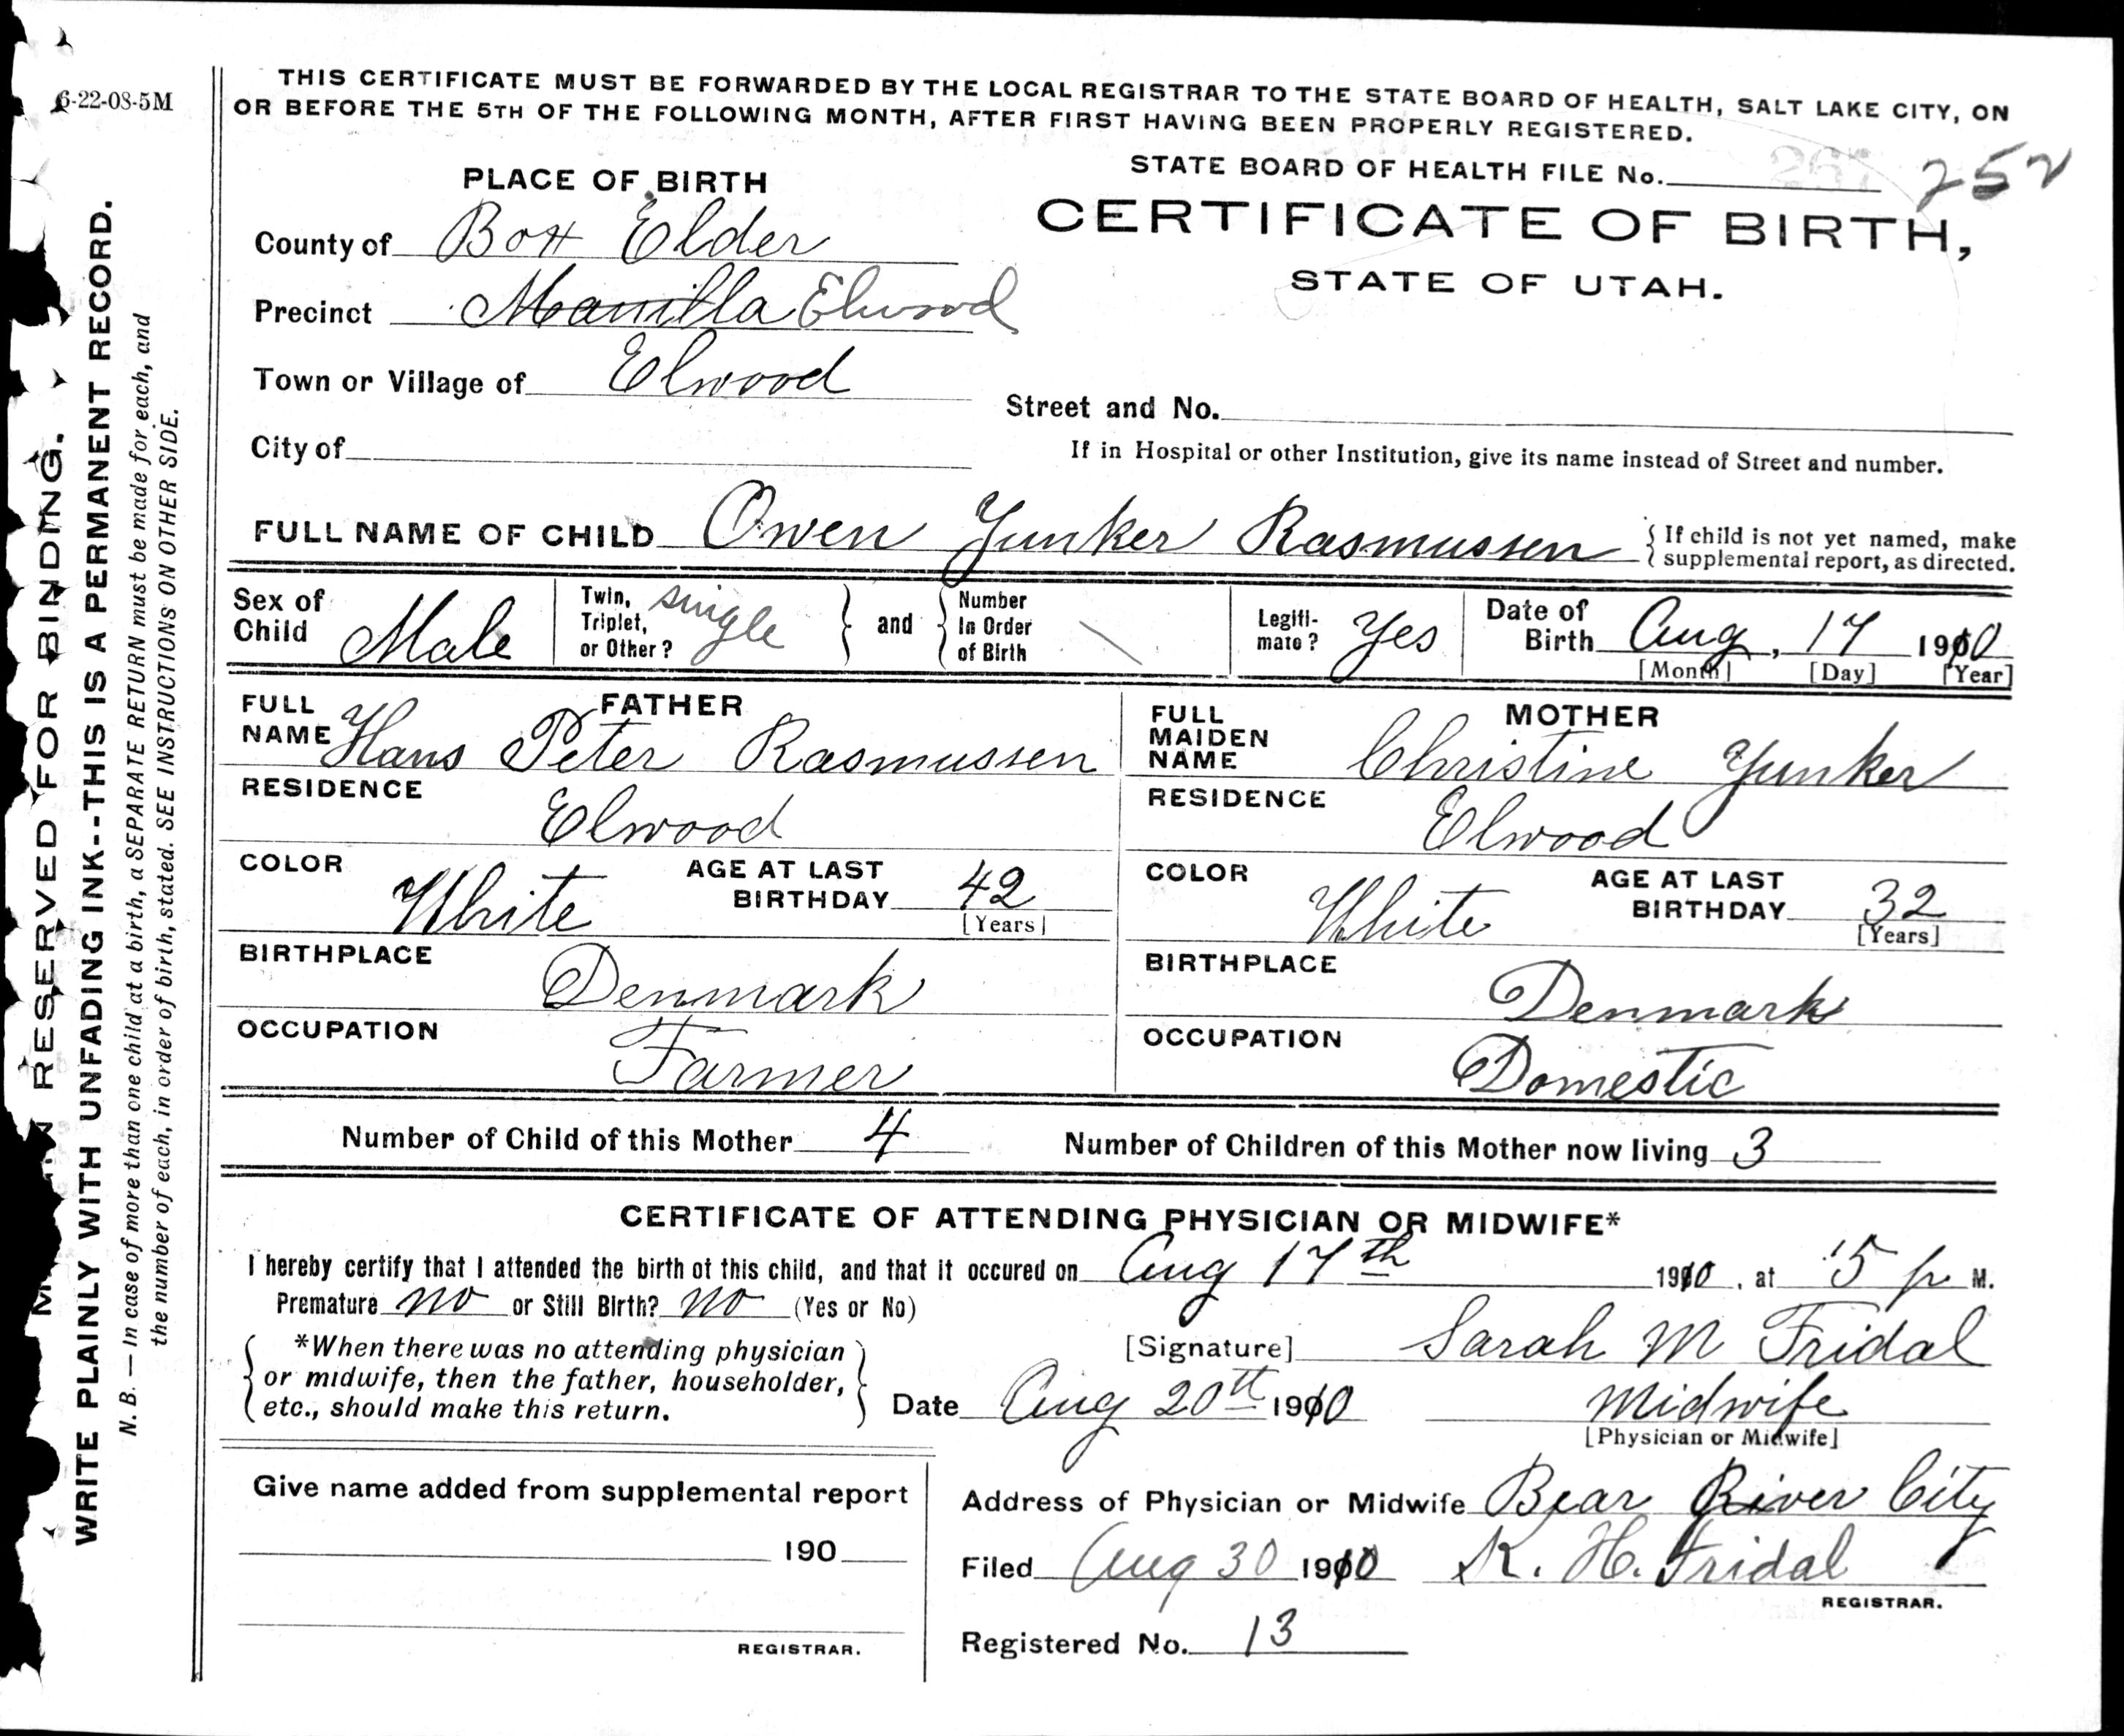 6-22-08-5M
THIS CERTIFICATE MUST BE FORWARDED BY THE LOCAL REGISTRAR TO THE STATE BOARD OF HEALTH, SALT LAKE CITY, ON
OR BEFORE THE 5TH OF THE FOLLOWING MONTH, AFTER FIRST HAVING BEEN PROPERLY REGISTERED.
STATE BOARD OF HEALTH FILE No. 252
CERTIFICATE OF BIRTH,
STATE OF UTAH.
PLACE OF BIRTH
County of Box Elder
Precinct Manilla Elwood
Town or Village of Elwood
Street and No.
City of
If in Hospital or other Institution, give its name instead of Street and number.
FULL NAME OF CHILD Owen Yunker Rasmussen { If child is not yet named, make
supplemental report, as directed.
Sex of Child Male
Twin, Triplet, or Other? single
and
Number In Order of Birth
Legiti-mate? Yes
Date of Birth Aug, 17 1910
[Month] [Day] [Year]
FATHER
FULL NAME Hans Peter Rasmussen
RESIDENCE
Elwood
COLOR White AGE AT LAST BIRTHDAY 42
[Years]
BIRTHPLACE
Denmark
OCCUPATION
Farmer
MOTHER
FULL MAIDEN NAME Christine Yunker
RESIDENCE
Elwood
COLOR White AGE AT LAST BIRTHDAY 32
[Years]
BIRTHPLACE
Denmark
OCCUPATION
Domestic
Number of Child of this Mother 4 Number of Children of this Mother now living 3
CERTIFICATE OF ATTENDING PHYSICIAN OR MIDWIFE*
I hereby certify that I attended the birth of this child, and that it occured on Aug 17th 1910, at 5 p M.
Premature no or Still Birth? no (Yes or No)
*When there was no attending physician
or midwife, then the father, householder,
etc., should make this return.
[Signature] Sarah M Fridal
Date Aug 20th 1910 Midwife
[Physician or Midwife]
Give name added from supplemental report
190
REGISTRAR.
Address of Physician or Midwife Bear River City
Filed Aug 30 1910 K. H. Fridal
REGISTRAR.
Registered No. 13
RESERVED FOR BINDING.
WRITE PLAINLY WITH UNFADING INK--THIS IS A PERMANENT RECORD.
N. B. — In case of more than one child at a birth, a SEPARATE RETURN must be made for each, and
the number of each, in order of birth, stated. SEE INSTRUCTIONS ON OTHER SIDE.